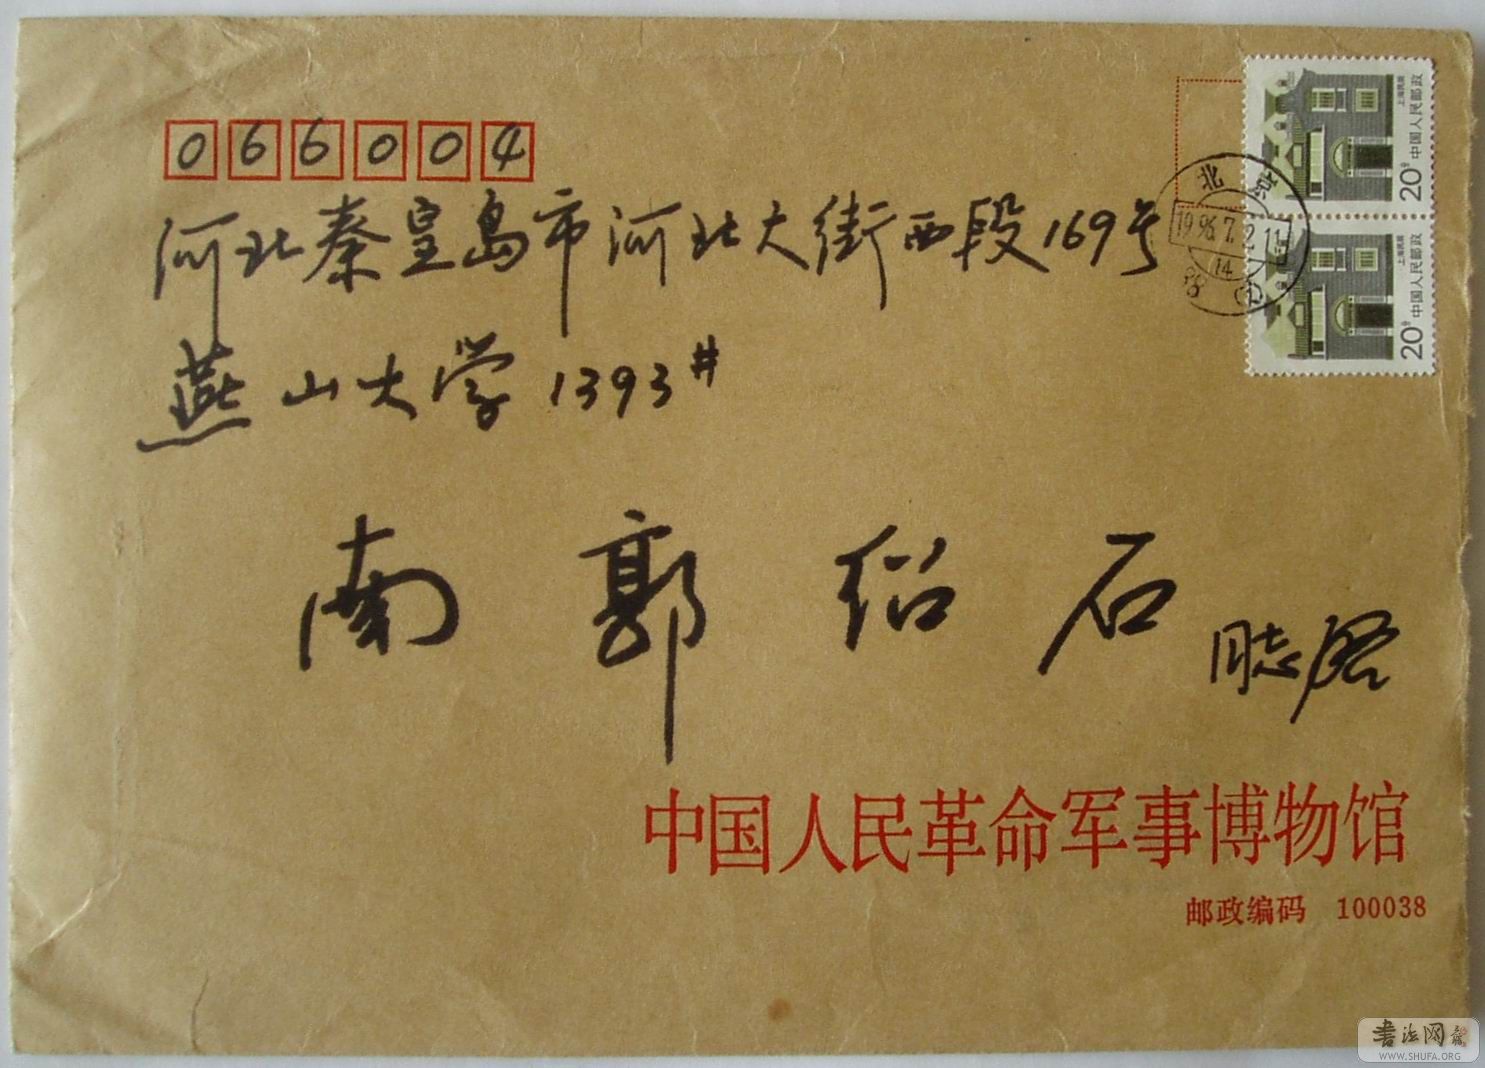 066004
河北秦皇岛市河北大街西段169号
燕山大学 1393#
南郭绍石 同志启
中国人民革命军事博物馆
邮政编码 100038
上海民居
中国人民邮政
20分
上海民居
中国人民邮政
20分
北京
1996.7.2.11
14
书法网
WWW.SHUFA.ORG